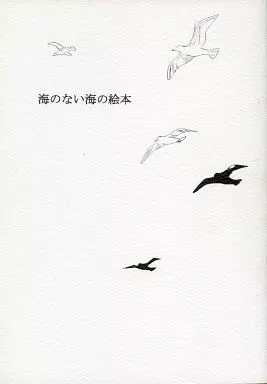 海のない海の絵本